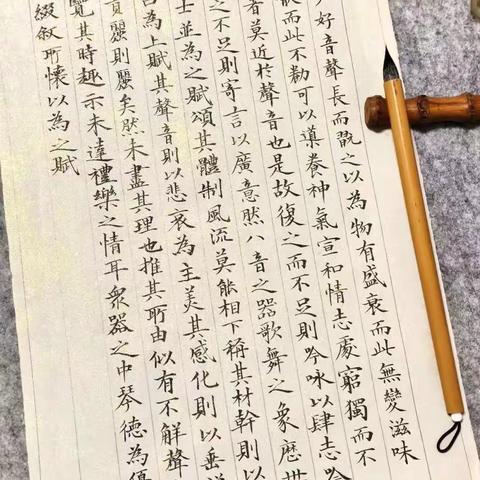 好音聲長而翫之以為物有盛衰而此無變滋味
而此不勌可以導養神氣宣和情志處窮獨而不
者莫近於聲音也是故復之而不足則吟咏以肆志吟
之不足則寄言以廣意然八音之器歌舞之象歷世
士並為之賦頌其體制風流莫能相下稱其材幹則以
為上賦其聲音則以悲哀為主美其感化則以垂
貴麗則麗矣然未盡其理也推其所由似有不解聲
覽其時趣示未達禮樂之情耳衆器之中琴德為優
綴叙所懷以為之賦